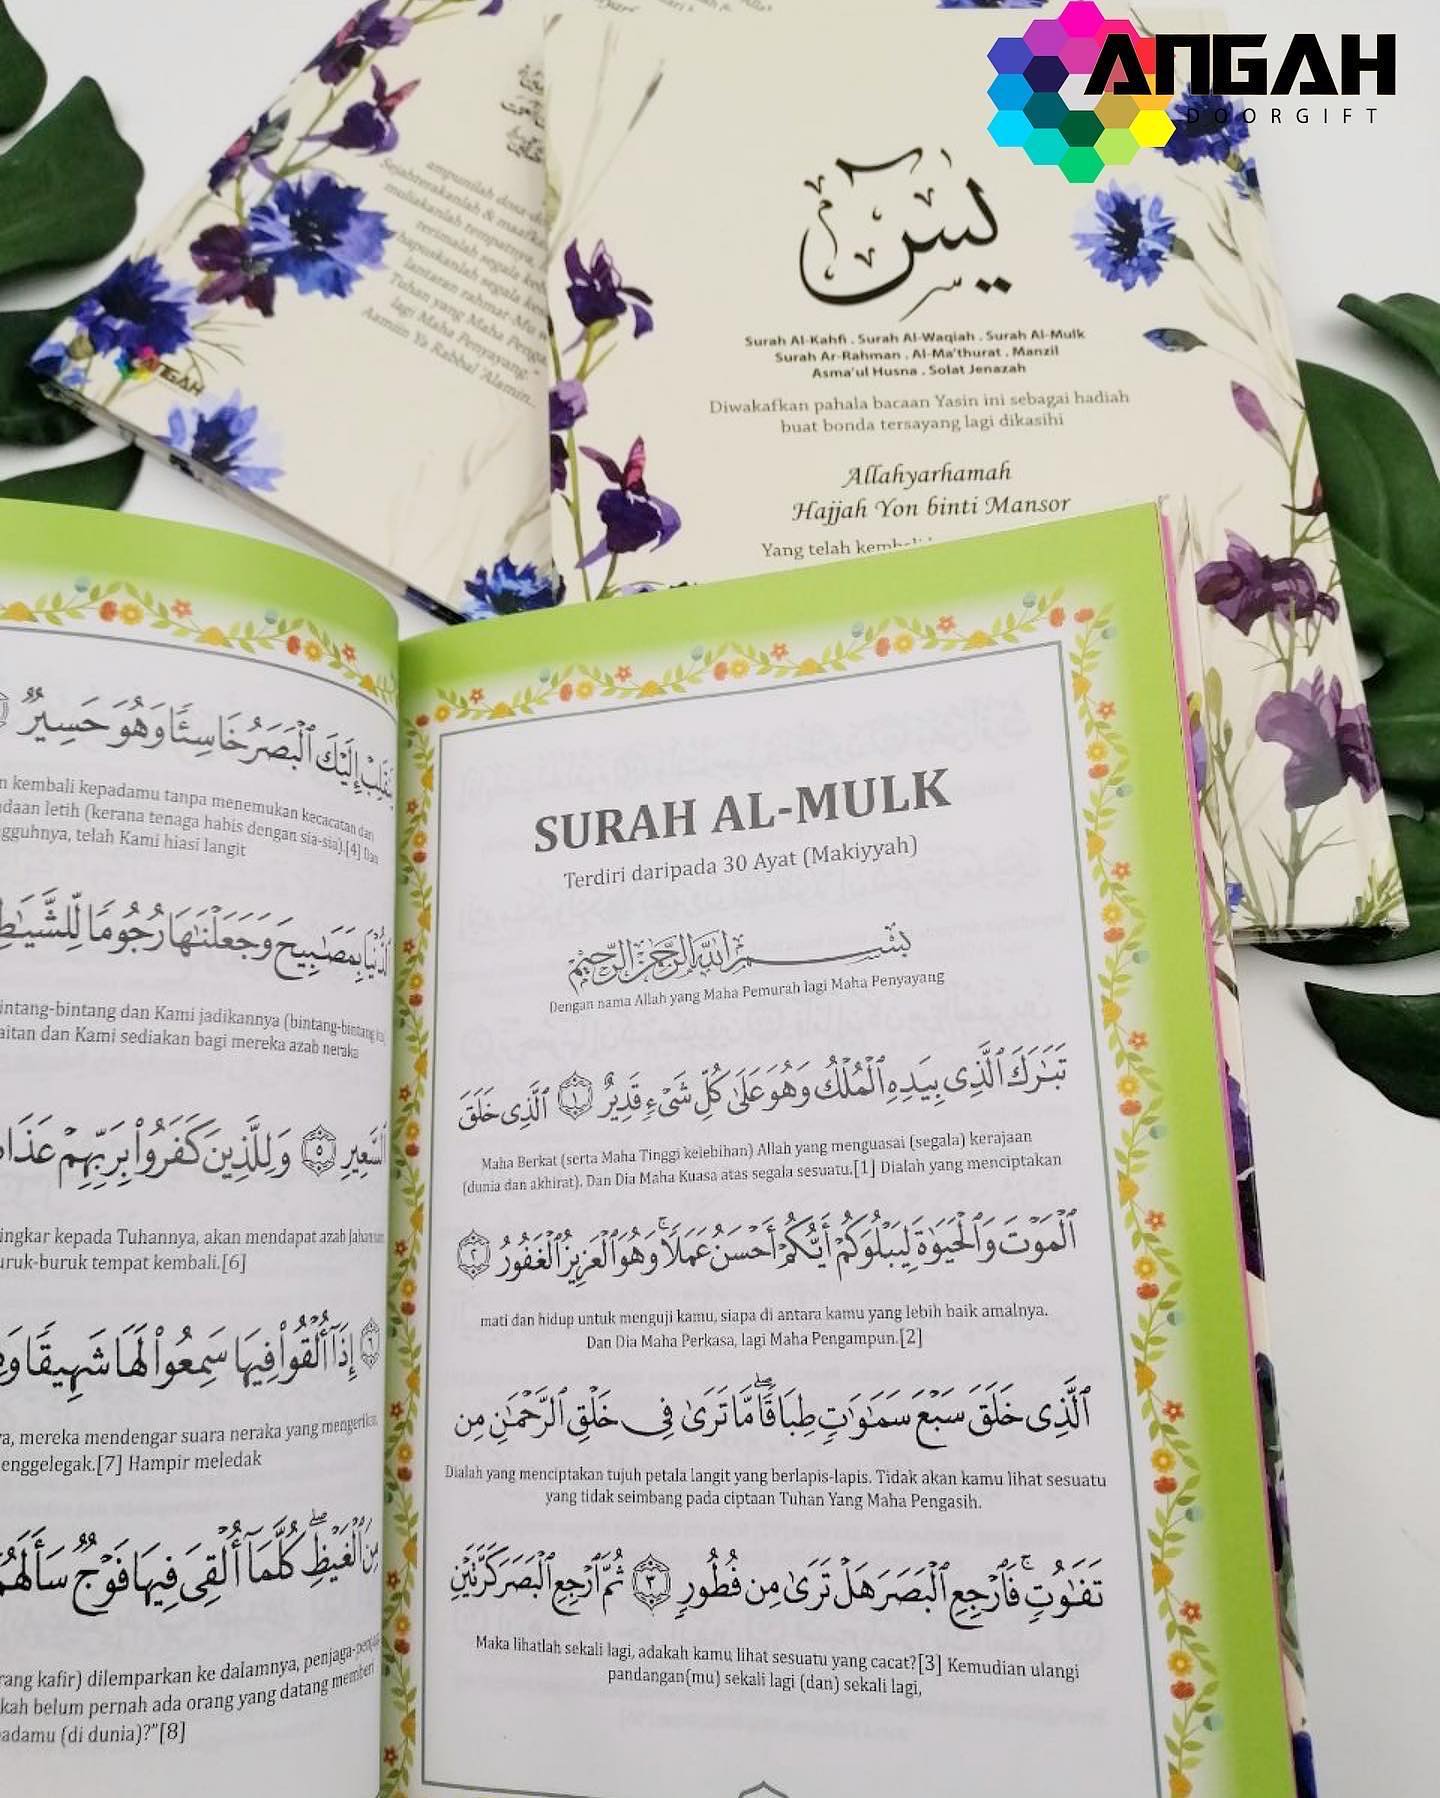 ANGAH
DOORGIFT
يس
Surah Al-Kahfi . Surah Al-Waqiah . Surah Al-Mulk
Surah Ar-Rahman . Al-Ma'thurat . Manzil
Asma'ul Husna . Solat Jenazah
Diwakafkan pahala bacaan Yasin ini sebagai hadiah
buat bonda tersayang lagi dikasihi
Allahyarhamah
Hajjah Yon binti Mansor
Yang telah
ampunilah
Sejahterakanlah & maafka
muliakanlah tempatnya,
terimalah segala
hapuskanlah segala
lantaran rahmat-Mu
Tuhan yang Maha
lagi Maha Penyayang."
Aamiin Ya Rabbal 'Alamin..
ANGAH
إِلَيْكَ ٱلْبَصَرُ خَاسِئًا وَهُوَ حَسِيرٌ
kembali kepadamu tanpa menemukan kecacatan dan
daan letih (kerana tenaga habis dengan sia-sia).[4] Dan
gguhnya, telah Kami hiasi langit
ٱلدُّنْيَا بِمَصَٰبِيحَ وَجَعَلْنَٰهَا رُجُومًا لِّلشَّيَٰطِ
intang-bintang dan Kami jadikannya (bintang-bintang
aitan dan Kami sediakan bagi mereka azab neraka
ٱلسَّعِيرِ ٥ وَلِلَّذِينَ كَفَرُوا۟ بِرَبِّهِمْ عَذَا
ingkar kepada Tuhannya, akan mendapat azab Jahannam
uruk-buruk tempat kembali.[6]
٦ إِذَآ أُلْقُوا۟ فِيهَا سَمِعُوا۟ لَهَا شَهِيقًا وَ
a, mereka mendengar suara neraka yang mengerikan
enggelegak.[7] Hampir meledak
مِنَ ٱلْغَيْظِ ۖ كُلَّمَآ أُلْقِىَ فِيهَا فَوْجٌ سَأَلَهُمْ
rang kafir) dilemparkan ke dalamnya, penjaga-
kah belum pernah ada orang yang datang memberi
adamu (di dunia)?"[8]
SURAH AL-MULK
Terdiri daripada 30 Ayat (Makiyyah)
بِسْمِ ٱللَّهِ ٱلرَّحْمَٰنِ ٱلرَّحِيمِ
Dengan nama Allah yang Maha Pemurah lagi Maha Penyayang
تَبَٰرَكَ ٱلَّذِى بِيَدِهِ ٱلْمُلْكُ وَهُوَ عَلَىٰ كُلِّ شَىْءٍ قَدِيرٌ ١ ٱلَّذِى خَلَقَ
Maha Berkat (serta Maha Tinggi kelebihan) Allah yang menguasai (segala) kerajaan
(dunia dan akhirat). Dan Dia Maha Kuasa atas segala sesuatu.[1] Dialah yang menciptakan
ٱلْمَوْتَ وَٱلْحَيَوٰةَ لِيَبْلُوَكُمْ أَيُّكُمْ أَحْسَنُ عَمَلًا ۚ وَهُوَ ٱلْعَزِيزُ ٱلْغَفُورُ ٢
mati dan hidup untuk menguji kamu, siapa di antara kamu yang lebih baik amalnya.
Dan Dia Maha Perkasa, lagi Maha Pengampun.[2]
ٱلَّذِى خَلَقَ سَبْعَ سَمَٰوَٰتٍ طِبَاقًا ۖ مَّا تَرَىٰ فِى خَلْقِ ٱلرَّحْمَٰنِ مِن
Dialah yang menciptakan tujuh petala langit yang berlapis-lapis. Tidak akan kamu lihat sesuatu
yang tidak seimbang pada ciptaan Tuhan Yang Maha Pengasih.
تَفَٰوُتٍ ۚ فَٱرْجِعِ ٱلْبَصَرَ هَلْ تَرَىٰ مِن فُطُورٍ ٣ ثُمَّ ٱرْجِعِ ٱلْبَصَرَ كَرَّتَيْنِ
Maka lihatlah sekali lagi, adakah kamu lihat sesuatu yang cacat?[3] Kemudian ulangi
pandangan(mu) sekali lagi (dan) sekali lagi,